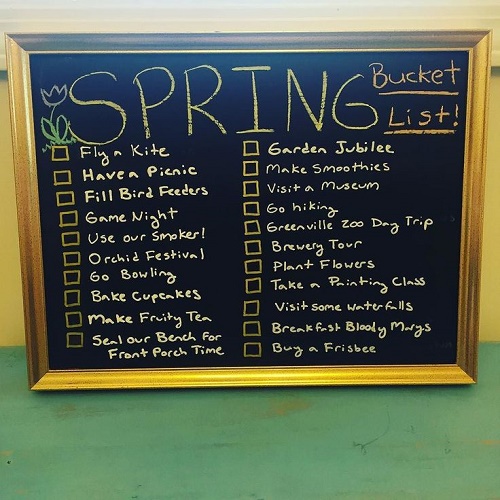 SPRING Bucket
List!
Fly a Kite
Have a Picnic
Fill Bird Feeders
Game Night
Use our Smoker!
Orchid Festival
Go Bowling
Bake Cupcakes
Make Fruity Tea
Seal our Bench for
Front Porch Time
Garden Jubilee
Make Smoothies
Visit a Museum
Go hiking
Greenville Zoo Day Trip
Brewery Tour
Plant Flowers
Take a Painting Class
Visit some waterfalls
Breakfast Bloody Marys
Buy a Frisbee